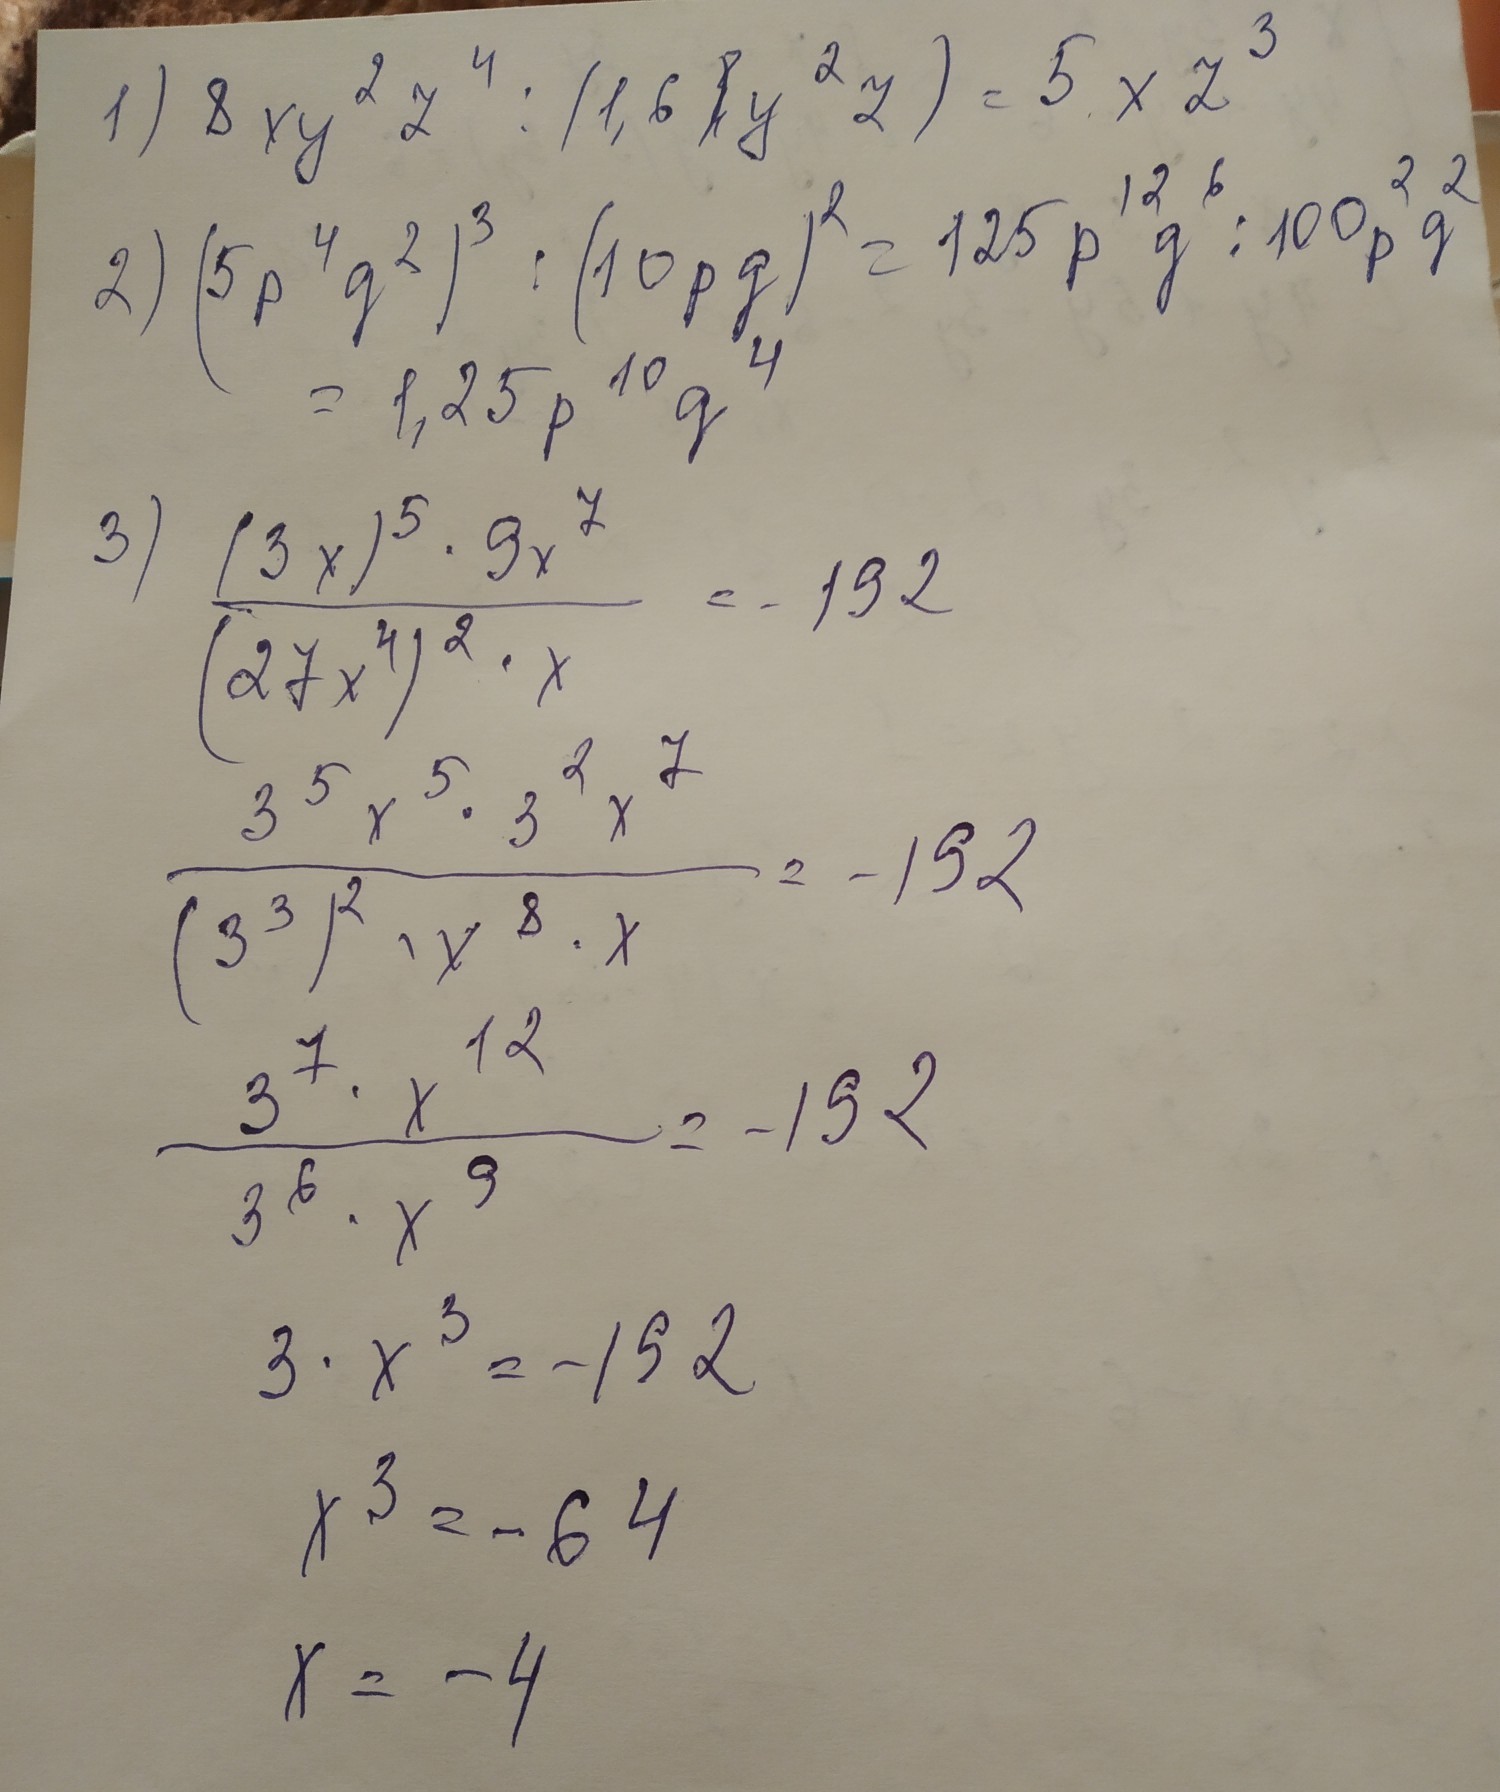 1) 8xy²z⁴ : (1,6 y²z) = 5xz³
2) (5p⁴g²)³ : (10pg)² = 125p¹²g⁶ : 100p²g²
= 1,25p¹⁰g⁴
3) (3x)⁵ · 9x⁷ / (27x⁴)² · x = -192
3⁵x⁵ · 3²x⁷ / (3³)² · x⁸ · x = -192
3⁷ · x¹² / 3⁶ · x⁹ = -192
3 · x³ = -192
x³ = -64
x = -4